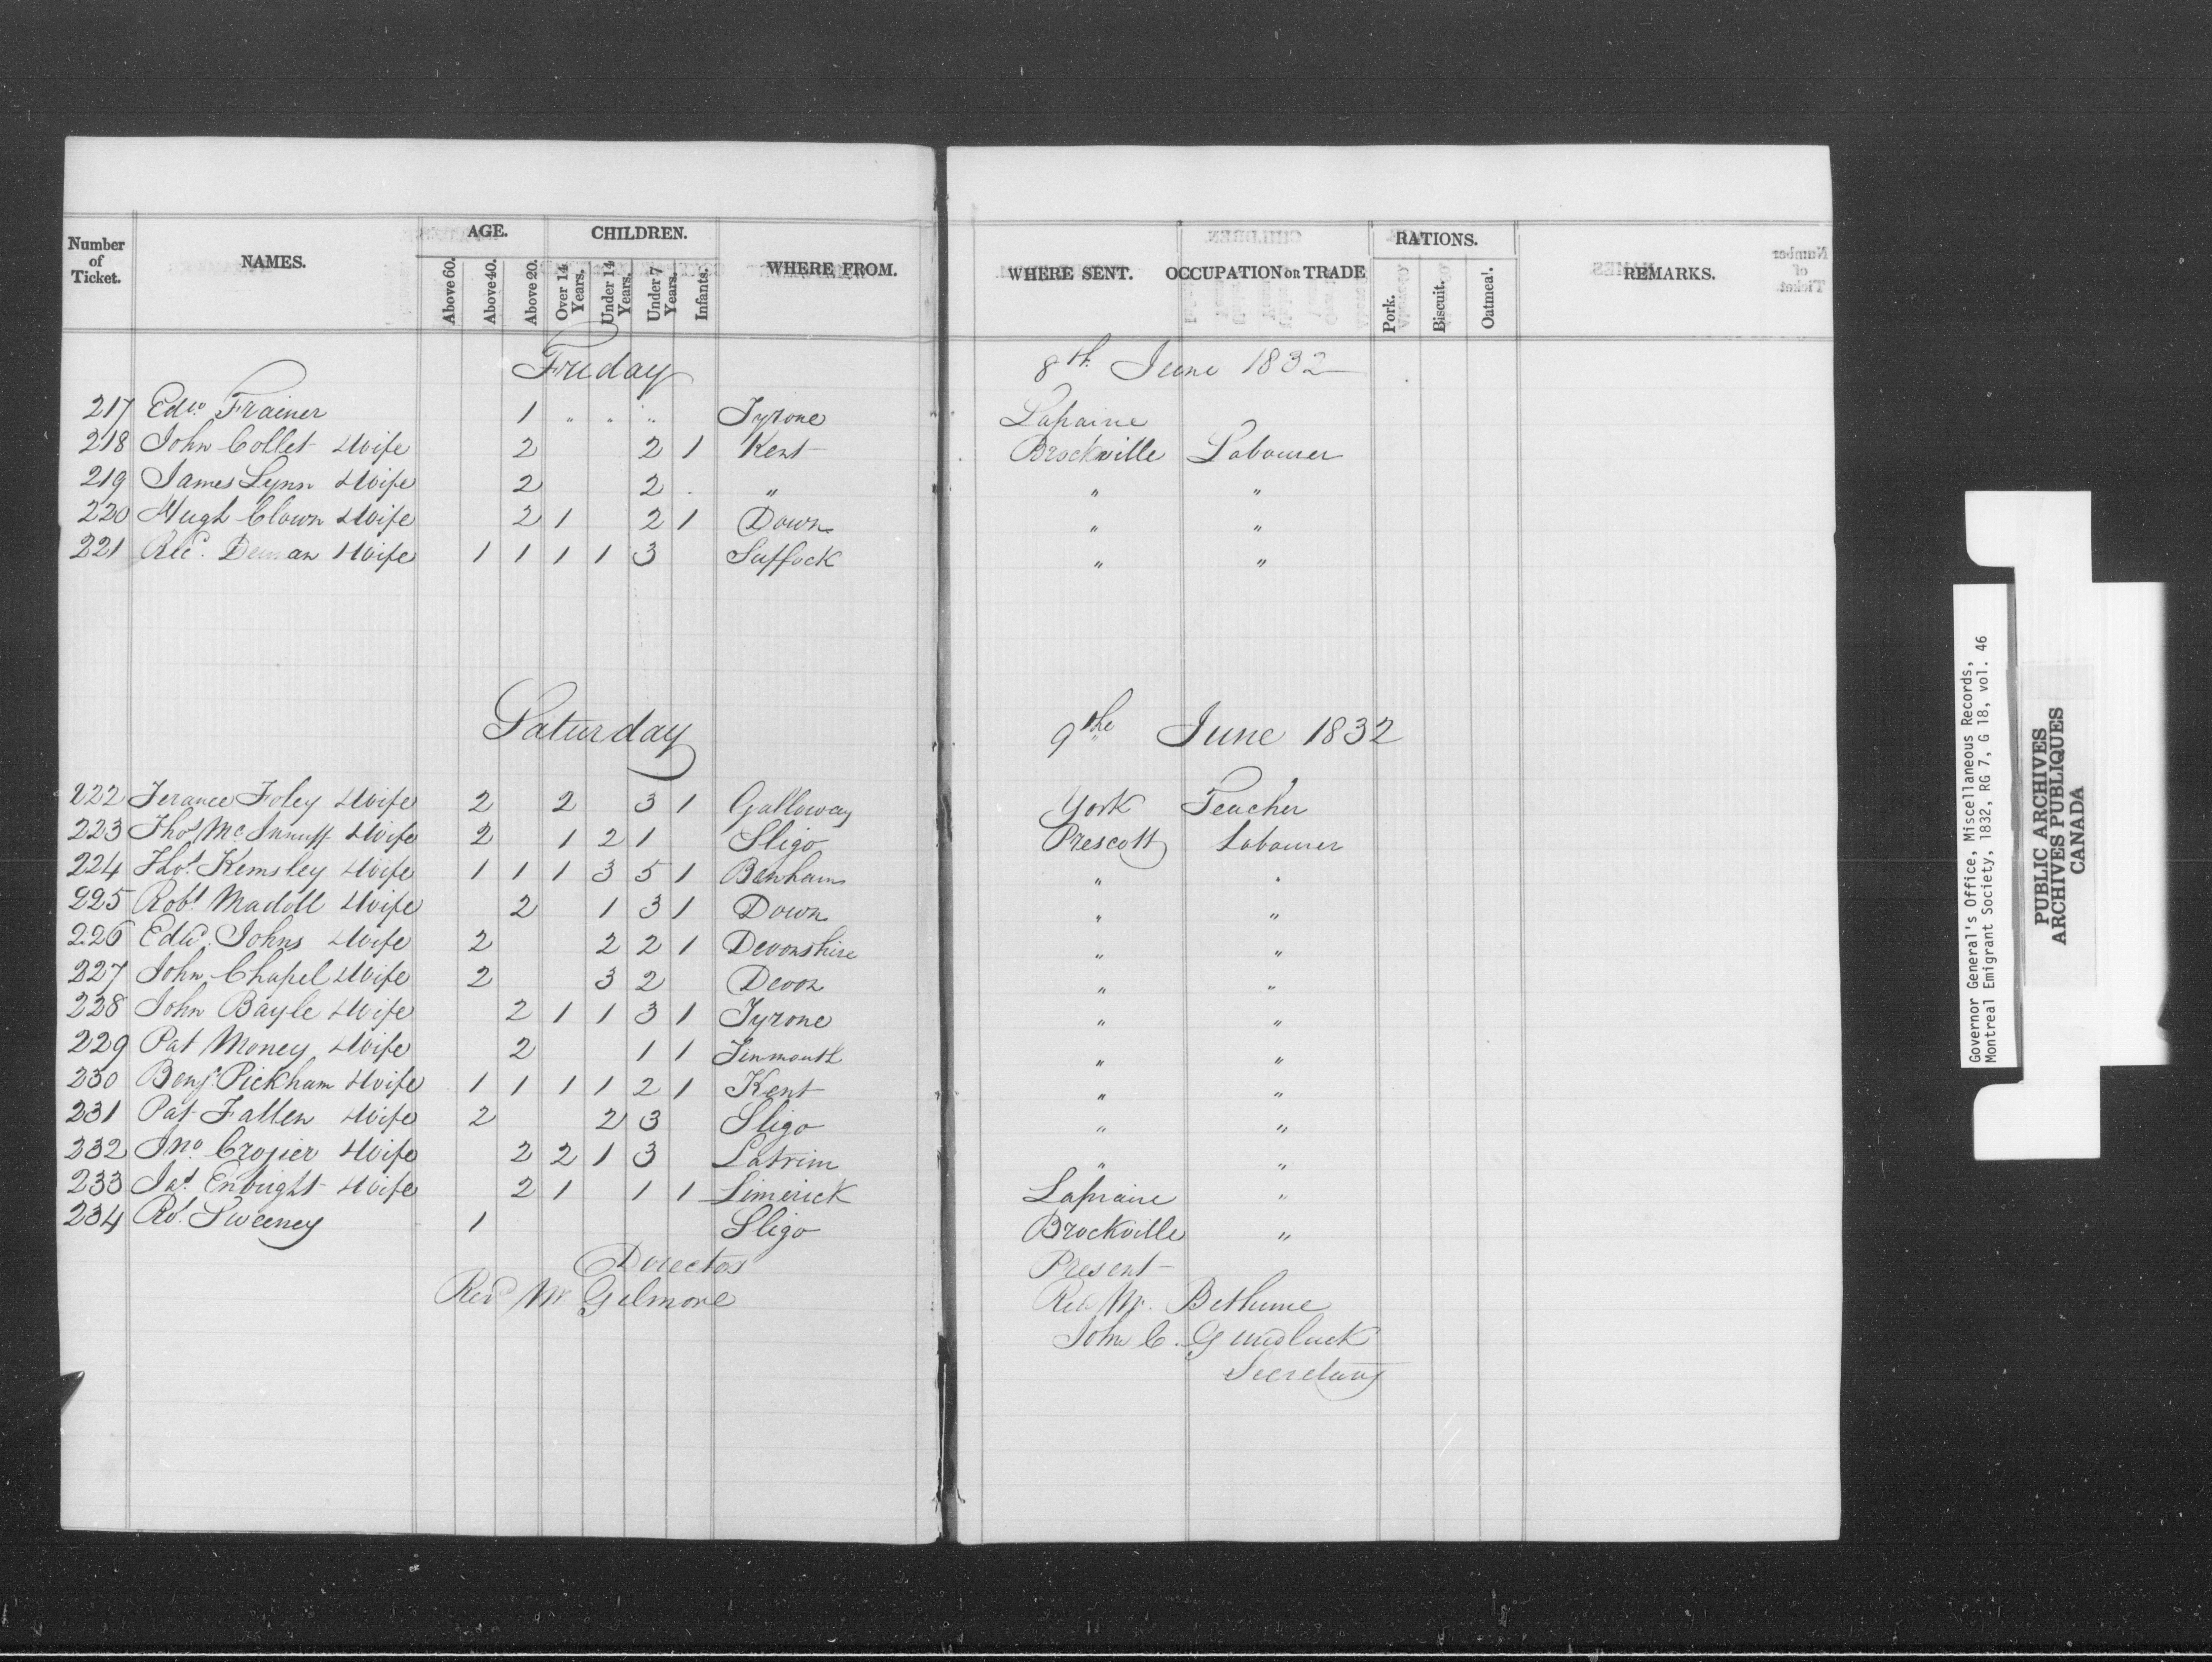 Number of Ticket. NAMES. AGE. CHILDREN. WHERE FROM. WHERE SENT. OCCUPATION or TRADE RATIONS. REMARKS.
Above 60. Above 40. Above 20. Over 14 Years. Under 14 Years. Under 7 Years. Infants. Pork. Biscuit. Oatmeal.
Friday 8th June 1832
217 Edwd Frainer 1 " " " Tyrone Laprairie
218 John Collet & Wife 2 2 1 Kent Brockville Labourer
219 James Lynn & Wife 2 2 " " "
220 Hugh Clown & Wife 2 1 2 1 Down " "
221 Ricd. Deman & Wife 1 1 1 1 3 Suffock " "
Saturday 9th June 1832
222 Terance Foley & Wife 2 2 3 1 Galloway York Teacher
223 Thos Mc Innuff & Wife 2 1 2 1 Sligo Prescott Labourer
224 Thos. Kemsley & Wife 1 1 1 3 5 1 Benham " "
225 Robt Madoll & Wife 2 1 3 1 Down " "
226 Edwd. Johns & Wife 2 2 2 1 Devonshire " "
227 John Chapel & Wife 2 3 2 Devon " "
228 John Bayle & Wife 2 1 1 3 1 Tyrone " "
229 Pat Money & Wife 2 1 1 Tinmouth " "
230 Benj. Pickham & Wife 1 1 1 1 2 1 Kent " "
231 Pat Fallen & Wife 2 2 3 Sligo " "
232 Jno Crozier & Wife 2 2 1 3 Latrim " "
233 Jas. Enright & Wife 2 1 1 1 Limerick Laprairie "
234 Rd. Sweeney 1 Sligo Brockville "
Director Present
Revd Mr Gilmore Revd Mr. Bethune
John C. Gundlack
Secretary
Governor General's Office, Miscellaneous Records,
Montreal Emigrant Society, 1832, RG 7, G 18, vol. 46
PUBLIC ARCHIVES
ARCHIVES PUBLIQUES
CANADA